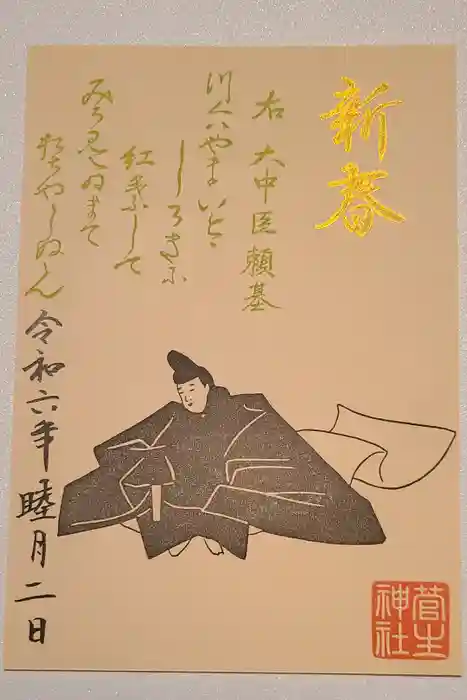 新春
右 大中臣頼基
つくはやまいとゝ
しけきに
紅葉して
みち見えぬまて
おちやしぬらん
令和六年 睦月二日
菅生
神社